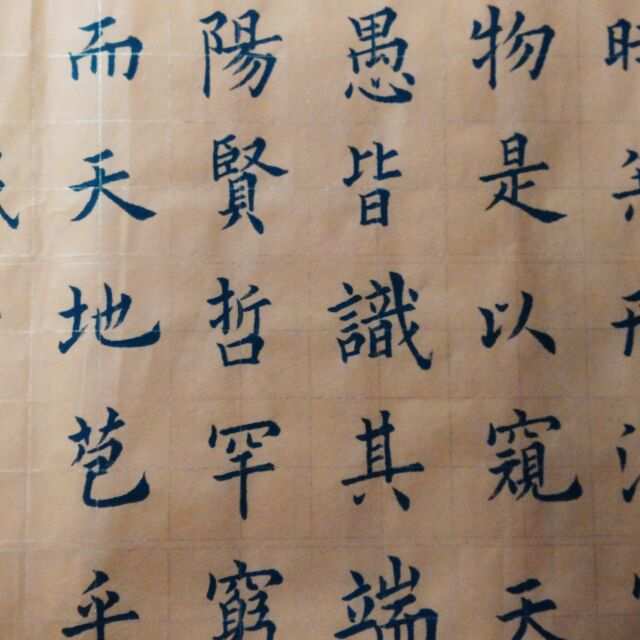 物是以窺天
愚皆識其端
陽賢哲罕窮
而天地苞乎